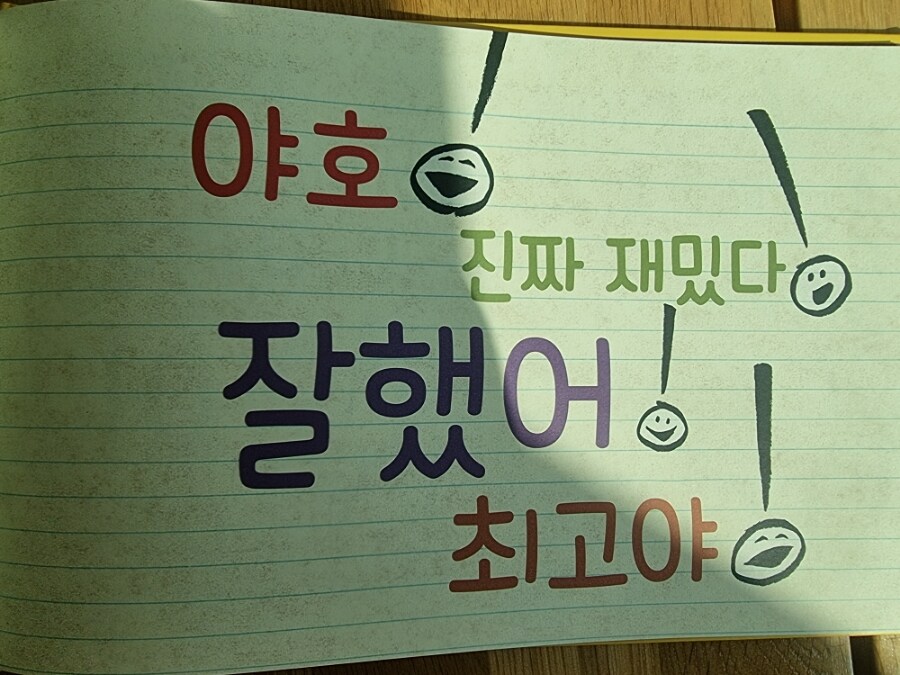 야호!
진짜 재밌다!
잘했어!
최고야!